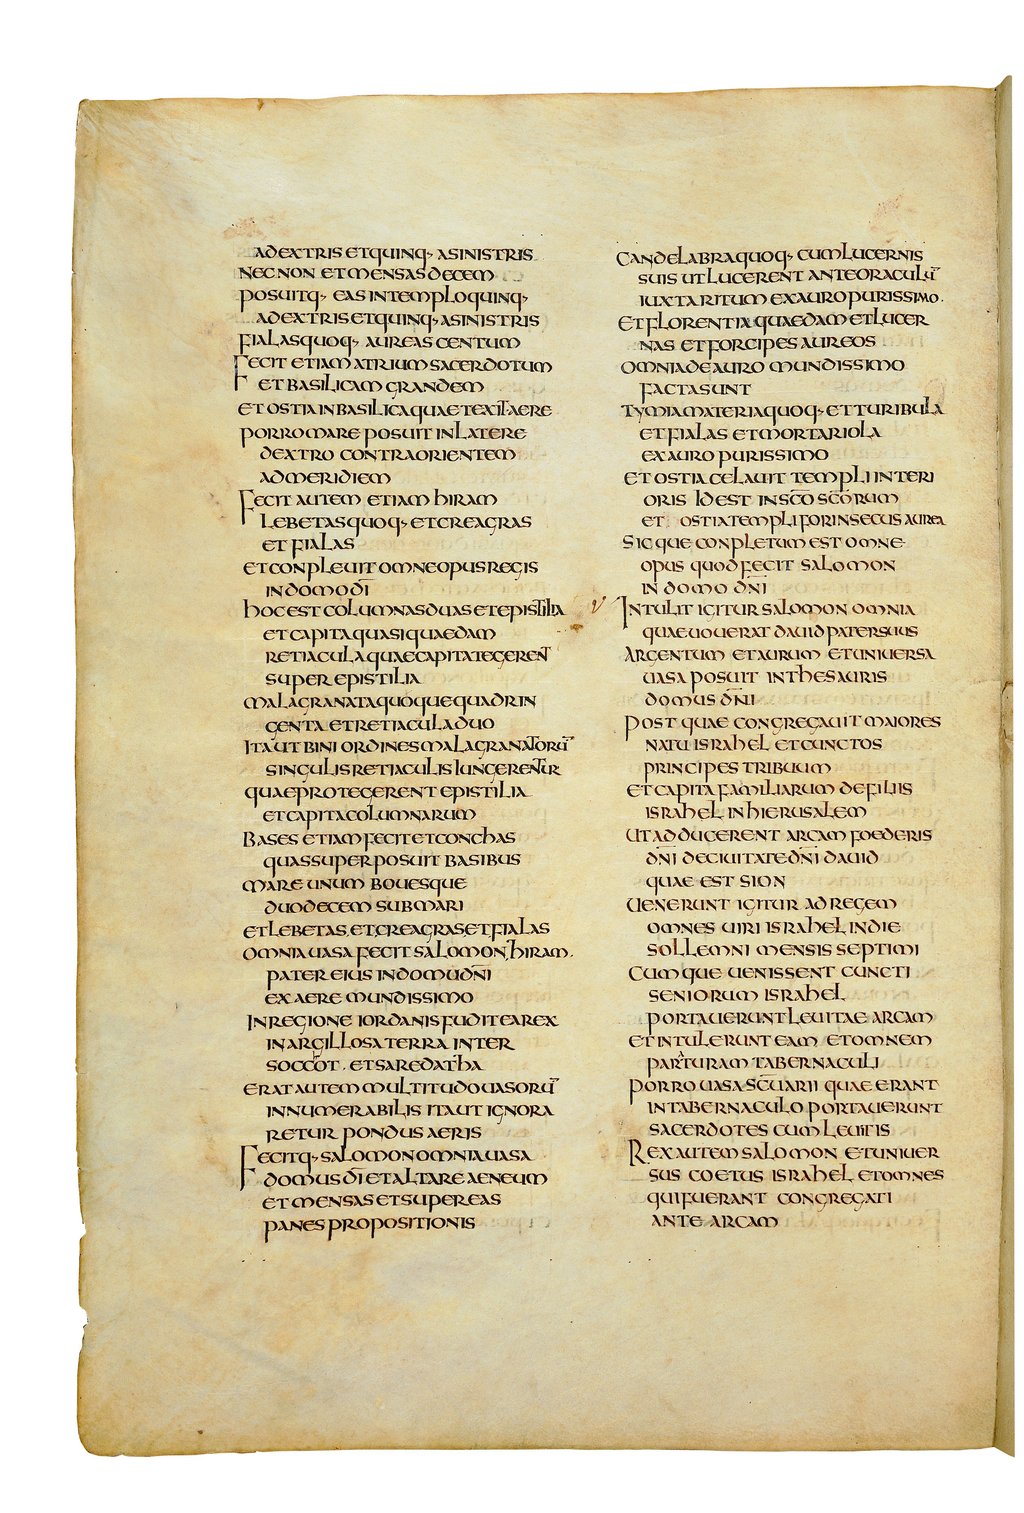 A DEXTRIS ET QUINQ· A SINISTRIS
NEC NON ET MENSAS DECEM
POSUITQ· EAS IN TEMPLO QUINQ·
A DEXTRIS ET QUINQ· A SINISTRIS
FIALAS QUOQ· AUREAS CENTUM
FECIT ETIAM ATRIUM SACERDOTUM
ET BASILICAM GRANDEM
ET OSTIA IN BASILICA QUAE TEXIT AERE
PORRO MARE POSUIT IN LATERE
DEXTRO CONTRA ORIENTEM
AD MERIDIEM
FECIT AUTEM ETIAM HIRAM
LEBETAS QUOQ· ET CREAGRAS
ET FIALAS
ET CONPLEUIT OMNE OPUS REGIS
IN DOMO DĪ
HOC EST COLUMNAS DUAS ET EPISTILIA
ET CAPITA QUASI QUAEDAM
RETIACULA QUAE CAPITA TEGERENT
SUPER EPISTILIA
MALAGRANATA QUOQUE QUADRIN
GENTA ET RETIACULA DUO
ITA UT BINI ORDINES MALAGRANATORŪ
SINGULIS RETIACULIS IUNGERENTUR
QUAE PROTEGERENT EPISTILIA
ET CAPITA COLUMNARUM
BASES ETIAM FECIT ET CONCHAS
QUAS SUPERPOSUIT BASIBUS
MARE UNUM BOUESQUE
DUODECEM SUB MARI
ET LEBETAS ET CREAGRAS ET FIALAS
OMNIA UASA FECIT SALOMON HIRAM
PATER EIUS IN DOMU DN̄I
EX AERE MUNDISSIMO
IN REGIONE IORDANIS FUDIT EA REX
IN ARGILLOSA TERRA INTER
SOCCOT · ET SAREDATHA
ERAT AUTEM MULTITUDO UASORŪ
INNUMERABILIS ITA UT IGNORA
RETUR PONDUS AERIS
FECITQ· SALOMON OMNIA UASA
DOMUS DĪ ET ALTARE AENEUM
ET MENSAS ET SUPER EAS
PANES PROPOSITIONIS
CANDELABRA QUOQ· CUM LUCERNIS
SUIS UT LUCERENT ANTE ORACULŪ
IUXTA RITUM EX AURO PURISSIMO ·
ET FLORENTIA QUAEDAM ET LUCER
NAS ET FORCIPES AUREOS
OMNIA DE AURO MUNDISSIMO
FACTA SUNT
TYMIAMATERIA QUOQ· ET TURIBULA
ET FIALAS ET MORTARIOLA
EX AURO PURISSIMO
ET OSTIA CELAUIT TEMPLI INTERI
ORIS ID EST IN SC̄O SC̄ORUM
ET OSTIA TEMPLI FORINSECUS AUREA
SICQUE CONPLETUM EST OMNE
OPUS QUOD FECIT SALOMON
IN DOMO DN̄I
INTULIT IGITUR SALOMON OMNIA
QUAE UOUERAT DAUID PATER SUUS
ARGENTUM ET AURUM ET UNIUERSA
UASA POSUIT IN THESAURIS
DOMUS DN̄I
POST QUAE CONGREGAUIT MAIORES
NATU ISRAHEL ET CUNCTOS
PRINCIPES TRIBUUM
ET CAPITA FAMILIARUM DE FILIIS
ISRAHEL IN HIERUSALEM
UT ADDUCERENT ARCAM FOEDERIS
DN̄I DE CIUITATE DN̄I DAUID
QUAE EST SION
UENERUNT IGITUR AD REGEM
OMNES UIRI ISRAHEL IN DIE
SOLLEMNI MENSIS SEPTIMI
CUMQUE UENISSENT CUNCTI
SENIORUM ISRAHEL
PORTAUERUNT LEUITAE ARCAM
ET INTULERUNT EAM ET OMNEM
PARATURAM TABERNACULI
PORRO UASA SC̄UARII QUAE ERANT
IN TABERNACULO PORTAUERUNT
SACERDOTES CUM LEUITIS
REX AUTEM SALOMON ET UNIUER
SUS COETUS ISRAHEL ET OMNES
QUI FUERANT CONGREGATI
ANTE ARCAM